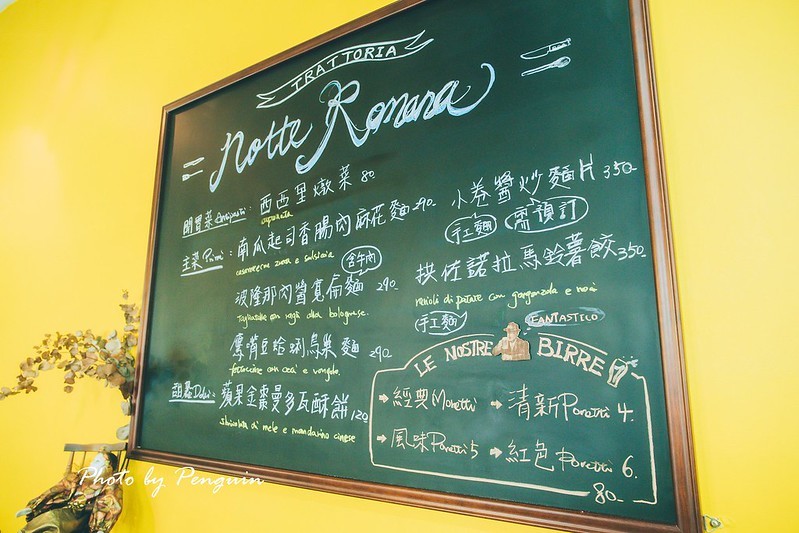 TRATTORIA
Notte Romana
開胃菜 Antipasti: 西西里燉菜 80
caponata
主菜 Primi: 南瓜起司香腸肉麻花麵 290-
casareccia zucca e salsiccia
含牛肉
波隆那肉醬寬扁麵 290
Tagliatelle con ragù alla bolognese.
鷹嘴豆蛤蜊鳥巢麵 290
fettuccine con ceci e vongole
甜點 Dolci: 蘋果金棗曼多瓦酥餅 120
Sbrisolona di mele e mandarino cinese
小卷醬炒麵片 350-
手工麵 需預訂
拱佐諾拉馬鈴薯餃 350
ravioli di patate con gorgonzola e noci
手工麵 FANTASTICO
LE NOSTRE BIRRE
→經典Moretti →清新Poretti 4.
→風味Poretti 5 →紅色Poretti 6.
80-
Photo by Penguin